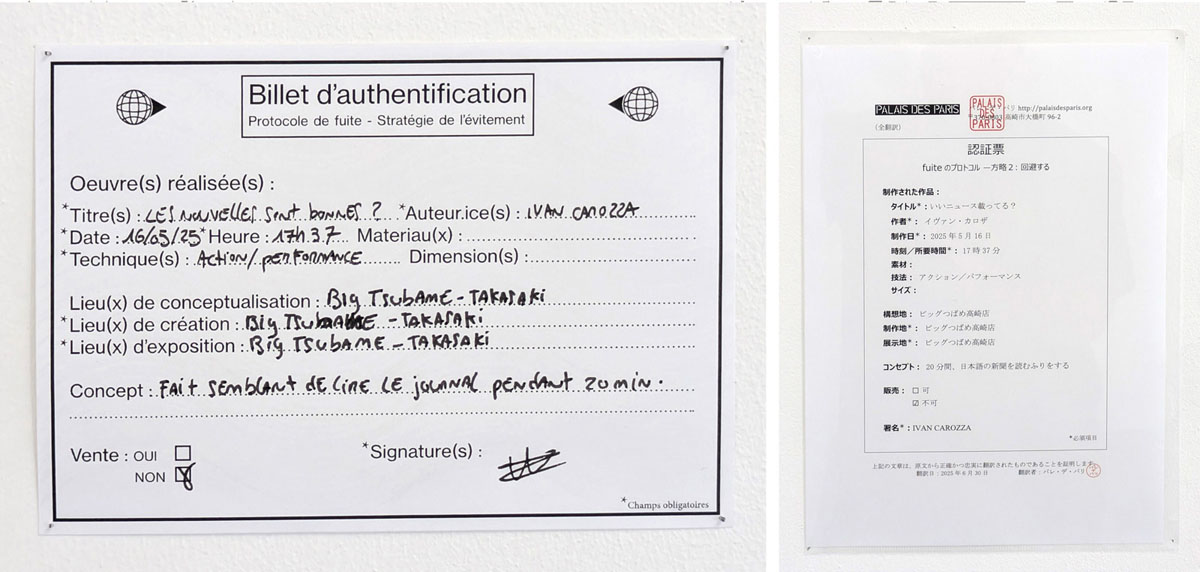 Billet d'authentification
Protocole de fuite - Stratégie de l'évitement
Oeuvre(s) réalisée(s) :
*Titre(s) : LES NOUVELLES SONT BONNES ? *Auteur.ice(s) : IVAN CAROZZA
*Date : 16/05/25 *Heure : 17h37 Materiau(x) :
*Technique(s) : Action/performance Dimension(s) :
Lieu(x) de conceptualisation : Big Tsubame - TAKASAKi
*Lieu(x) de création : Big Tsubame - TAKASAKi
*Lieu(x) d'exposition : Big Tsubame - TAKASAKi
Concept : Fait semblant de lire le journal pendant 20 min.
Vente : OUI
NON
*Signature(s) :
*Champs obligatoires
PALAIS DES PARIS
PALAIS
DES
PARIS
パリ http://palaisdesparis.org
高崎市大橋町 96-2
(全翻訳)
認証票
fuite のプロトコル ー方略 2 : 回避する
制作された作品 :
タイトル* : いいニュース載ってる？
作者* : イヴァン・カロザ
制作日* : 2025 年 5 月 16 日
時刻／所要時間* : 17 時 37 分
素材 :
技法 : アクション／パフォーマンス
サイズ :
構想地 : ビッグつばめ高崎店
制作地* : ビッグつばめ高崎店
展示地* : ビッグつばめ高崎店
コンセプト : 20 分間、日本語の新聞を読むふりをする
販売 : ☐ 可
☑ 不可
署名* : IVAN CAROZZA
*必須項目
上記の文章は、原文から正確かつ忠実に翻訳されたものであることを証明します
翻訳日 : 2025 年 6 月 30 日 翻訳者 : パレ・デ・パリ